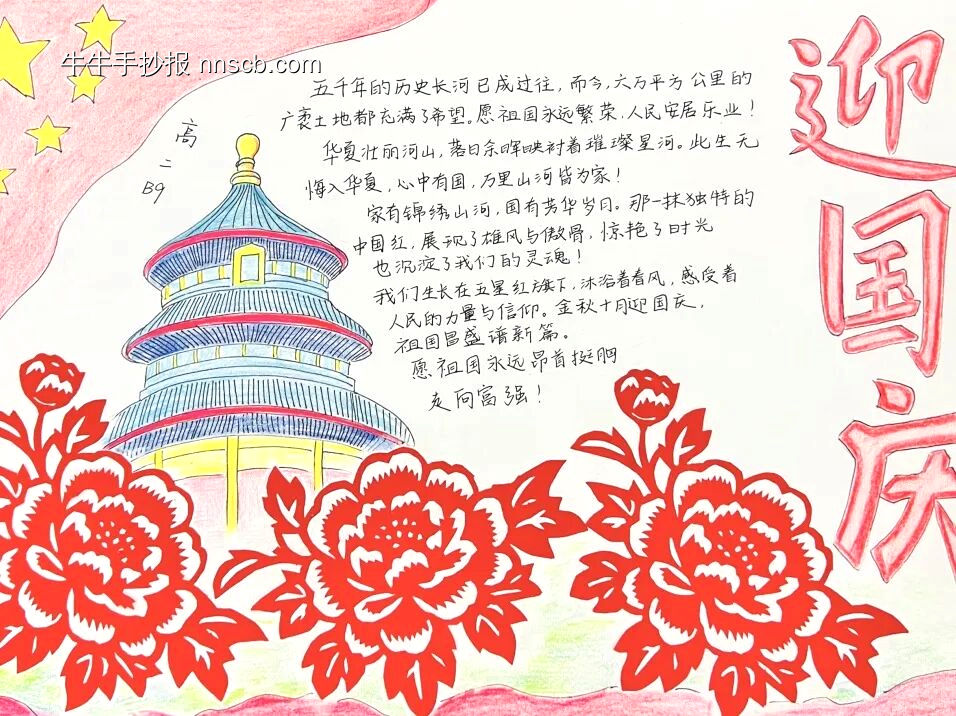 牛牛手抄报 nnscb.com
迎国庆
高二B9
五千年的历史长河已成过往，而今，六万平方公里的
广袤土地都充满了希望。愿祖国永远繁荣，人民安居乐业！
华夏壮丽河山，落日余晖映衬着璀璨星河。此生无
悔入华夏，心中有国，万里山河皆为家！
家有锦绣山河，国有芳华岁月。那一抹独特的
中国红，展现了雄风与傲骨，惊艳了时光
也沉淀了我们的灵魂！
我们生长在五星红旗下，沐浴着春风，感受着
人民的力量与信仰。金秋十月迎国庆，
祖国昌盛谱新篇。
愿祖国永远昂首挺胸
走向富强！